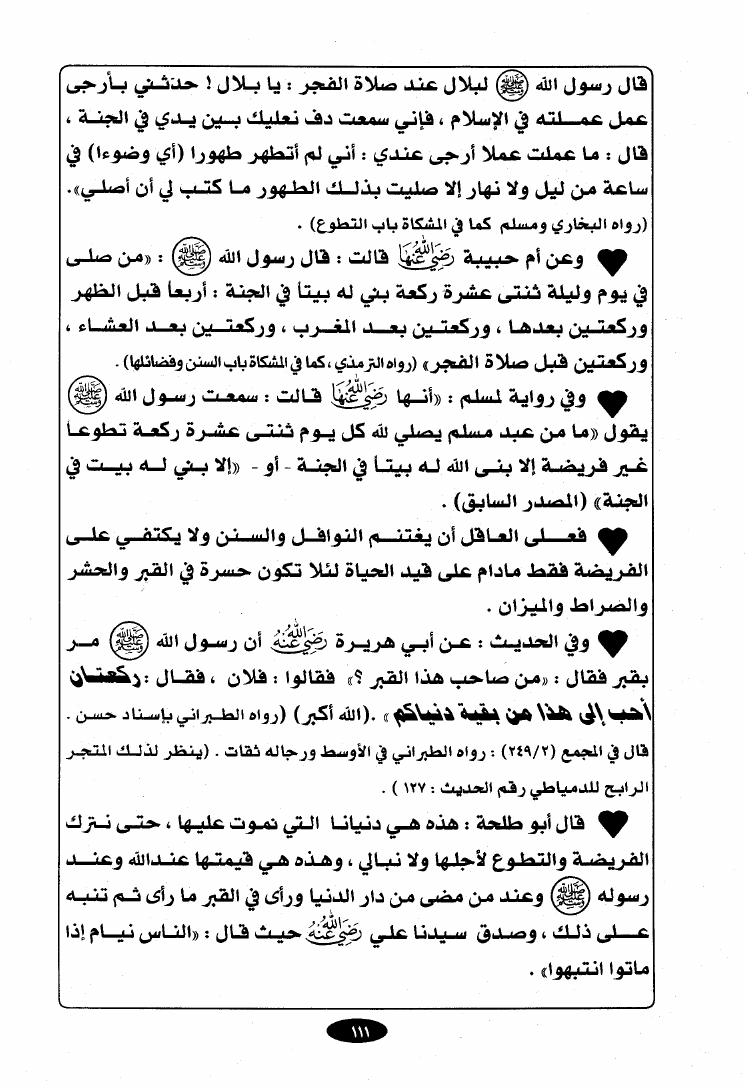 قال رسول الله ﷺ لبلال عند صلاة الفجر : يا بلال ! حدثني بأرجى
عمل عملته في الإسلام ، فإني سمعت دف نعليك بين يدي في الجنة ،
قال : ما عملت عملا أرجى عندي : أني لم أتطهر طهورا (أي وضوءا) في
ساعة من ليل ولا نهار إلا صليت بذلك الطهور ما كتب لي أن أصلي».
(رواه البخاري ومسلم كما في المشكاة باب التطوع) .
♥ وعن أم حبيبة رضي الله عنها قالت : قال رسول الله ﷺ : «من صلى
في يوم وليلة ثنتى عشرة ركعة بني له بيتاً في الجنة : أربعاً قبل الظهر
وركعتين بعدها ، وركعتين بعد المغرب ، وركعتين بعد العشاء ،
وركعتين قبل صلاة الفجر» (رواه الترمذي ، كما في المشكاة باب السنن وفضائلها) .
♥ وفي رواية لمسلم : «أنها رضي الله عنها قالت : سمعت رسول الله ﷺ
يقول «ما من عبد مسلم يصلي لله كل يوم ثنتى عشرة ركعة تطوعاً
غير فريضة إلا بنى الله له بيتاً في الجنة - أو - «إلا بني له بيت في
الجنة» (المصدر السابق) .
♥ فعلى العاقل أن يغتنم النوافل والسنن ولا يكتفي على
الفريضة فقط مادام على قيد الحياة لئلا تكون حسرة في القبر والحشر
والصراط والميزان .
♥ وفي الحديث : عن أبي هريرة رضي الله عنه أن رسول الله ﷺ مر
بقبر فقال : «من صاحب هذا القبر ؟» فقالوا : فلان ، فقال : ركعتان
أحب إلى هذا من بقية دنياكم» .(الله أكبر) (رواه الطبراني بإسناد حسن .
قال في المجمع (٢٤٩/٢) : رواه الطبراني في الأوسط ورجاله ثقات . (ينظر لذلك المتجر
الرابح للدمياطي رقم الحديث : ١٢٧ ) .
♥ قال أبو طلحة : هذه هي دنيانا التي نموت عليها ، حتى نترك
الفريضة والتطوع لأجلها ولا نبالي ، وهذه هي قيمتها عندالله وعند
رسوله ﷺ وعند من مضى من دار الدنيا ورأى في القبر ما رأى ثم تنبه
على ذلك ، وصدق سيدنا علي رضي الله عنه حيث قال : «الناس نيام إذا
ماتوا انتبهوا» .
١١١